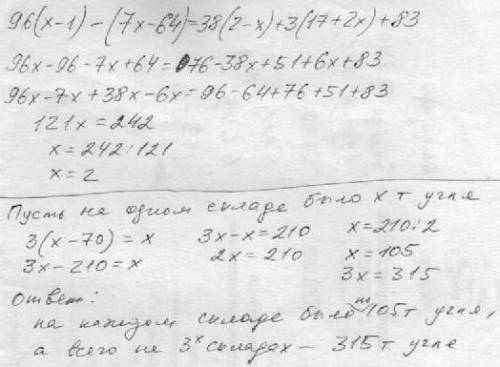 96(x-1)-(7x-64)=38(2-x)+3(17+2x)+83
96x-96-7x+64=76-38x+51+6x+83
96x-7x+38x-6x=96-64+76+51+83
121x=242
x=242:121
x=2
Пусть на одном складе было x т угля
3(x-70)=x 3x-x=210 x=210:2
3x-210=x 2x=210 x=105
3x=315
Ответ:
на каждом складе было по 105т угля,
а всего на 3х складах - 315т угля